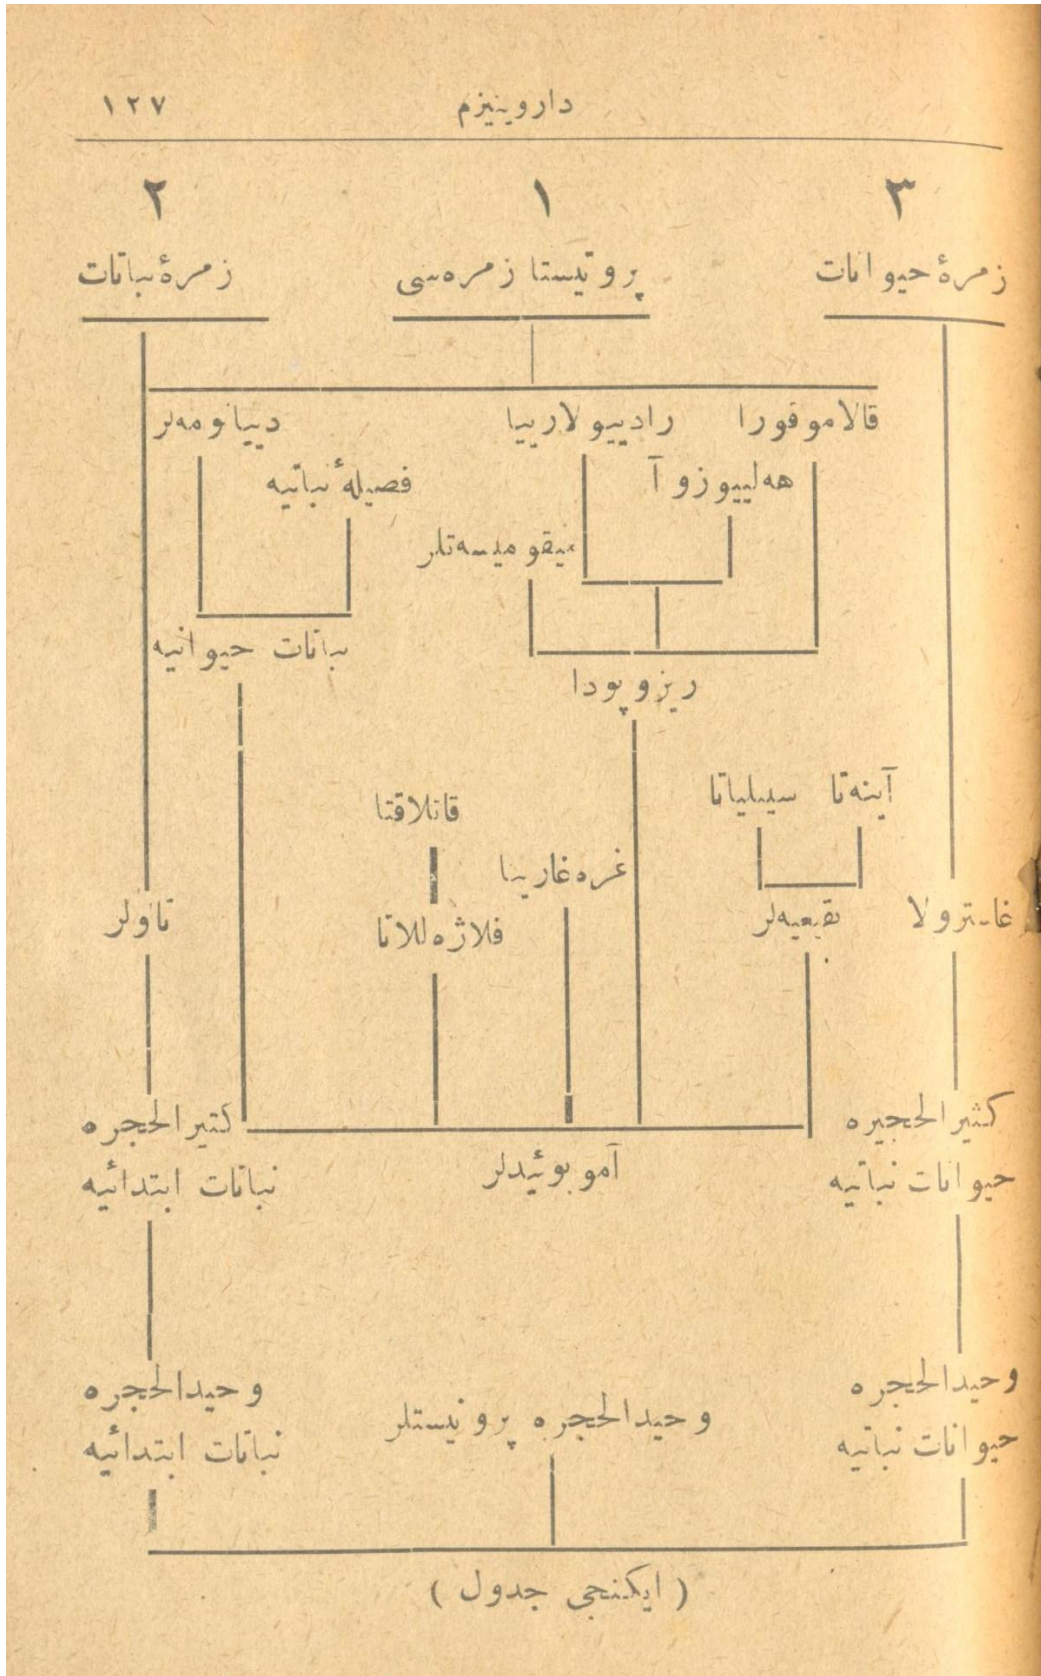 داروینیزم ١٢٧
٣ ١ ٢
زمرۀ حیوانات پروتیستا زمره‌سی زمرۀ نباتات
قالاموفورا رادییولارییا دییاتومه‌لر
هه‌لییوزوآ فصیلۀ نباتیه
میقومیسه‌تلر
نباتات حیوانیه
ریزوپودا
آینه‌تا سیلیاتا قاتلاقتا
غره‌غارینا
غاسترولا نقیعیه‌لر فلاژه‌للاتا تاولر
کثیر الحجیره کثیر الحجره
آموبوئیدلر
حیوانات نباتیه نباتات ابتدائیه
وحید الحجره وحید الحجره
وحید الحجره پروتیستلر
حیوانات نباتیه نباتات ابتدائیه
( ایکنجی جدول )